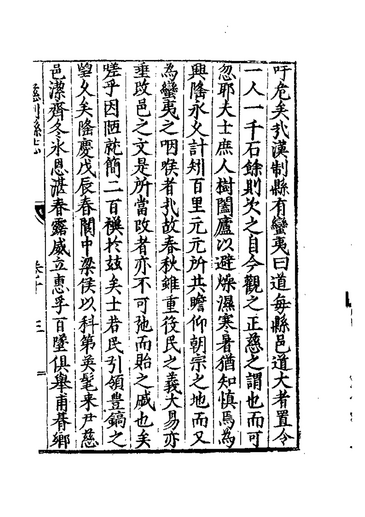 吁危矣哉漢制縣有蠻夷曰道每縣邑道大者置令
一人一千石餘則次之自今觀之正慈之謂也而可
忽耶夫士庶人樹闔廬以避燥濕寒暑猶知慎焉為
興隆永乂計矧百里元元所共瞻仰朝宗之地而又
為蠻夷之咽喉者哉故春秋雖重役民之義大易亦
垂改邑之文是所當改者亦不可弛而貽之戚也矣
嗟乎因陋就簡二百禩於玆矣士若民引領豐鎬之
望久矣隆慶戊辰春閬中梁侯以科第英髦来尹慈
邑潔齊冬氷恩湛春露威立恵孚百墜俱舉甫朞鄉
慈利縣志
卷十
三